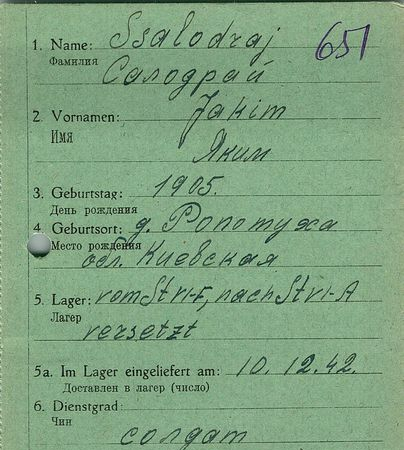 1. Name: Ssalodraj 651
Фамилия
Салодрай
2. Vornamen: Jakim
Имя
Яким
3. Geburtstag: 1905.
День рождения
4. Geburtsort: д. Ропотуха
Место рождения
обл. Киевская
5. Lager: vom St VI-F, nach St VI-A
Лагер
versetzt
5a. Im Lager eingeliefert am: 10. 12. 42.
Доставлен в лагер (число)
6. Dienstgrad:
Чин
солдат